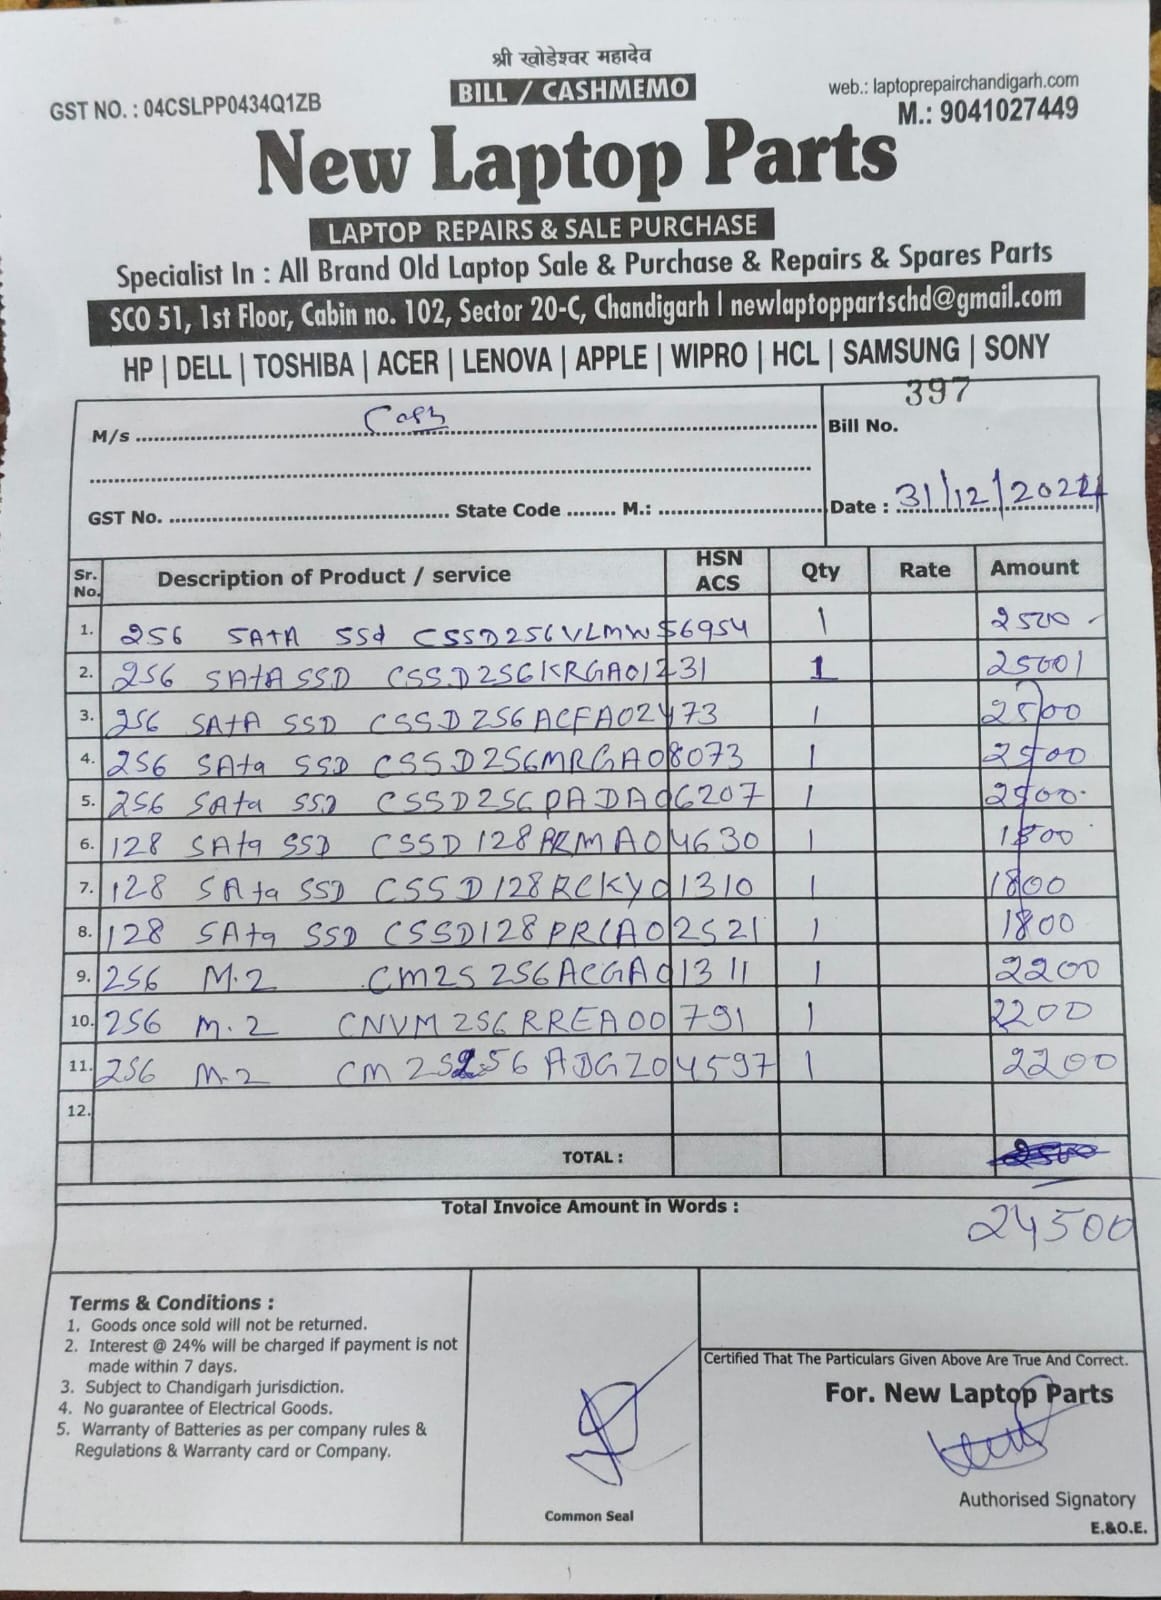 श्री खोडेश्वर महादेव
BILL / CASHMEMO
GST NO. : 04CSLPP0434Q1ZB
web.: laptoprepairchandigarh.com
M.: 9041027449
New Laptop Parts
LAPTOP REPAIRS & SALE PURCHASE
Specialist In : All Brand Old Laptop Sale & Purchase & Repairs & Spares Parts
SCO 51, 1st Floor, Cabin no. 102, Sector 20-C, Chandigarh | newlaptoppartschd@gmail.com
HP | DELL | TOSHIBA | ACER | LENOVA | APPLE | WIPRO | HCL | SAMSUNG | SONY
M/s Cash
Bill No. 397
GST No. State Code M.:
Date : 31/12/2024
Sr. No. Description of Product / service HSN ACS Qty Rate Amount
1. 256 SATA SSd CSSD256VLMW56954 1 2500
2. 256 SAtA SSD CSSD256KRGA01231 1 2500
3. 256 SAtA SSD CSSD256ACFA02473 1 2500
4. 256 SAta SSD CSSD256MRGA08073 1 2500
5. 256 SAta SSD CSSD256PADA06207 1 2500
6. 128 SAta SSD CSSD128PRMA04630 1 1800
7. 128 SAta SSD CSSD128RCKY01310 1 1800
8. 128 SAta SSD CSSD128PRCA02521 1 1800
9. 256 M.2 CM2S256ACGA01311 1 2200
10. 256 M.2 CNVM256RREA00791 1 2200
11. 256 M.2 CM2S256ADGZ04597 1 2200
12.
TOTAL :
Total Invoice Amount in Words :
24500
Terms & Conditions :
1. Goods once sold will not be returned.
2. Interest @ 24% will be charged if payment is not
made within 7 days.
3. Subject to Chandigarh jurisdiction.
4. No guarantee of Electrical Goods.
5. Warranty of Batteries as per company rules &
Regulations & Warranty card or Company.
Common Seal
Certified That The Particulars Given Above Are True And Correct.
For. New Laptop Parts
Authorised Signatory
E.&O.E.